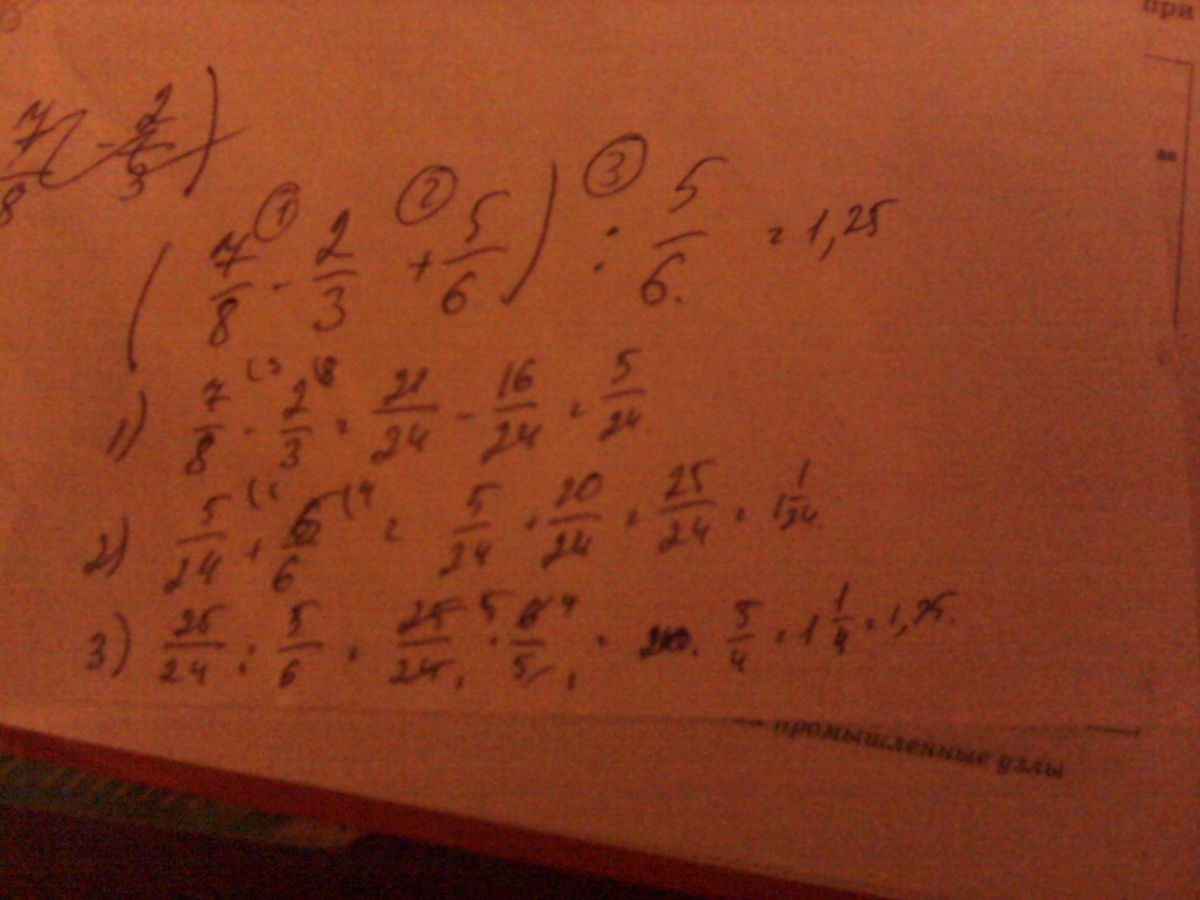 при
7/8 - 2/3)
(7/8 ① - 2/3 ② + 5/6) ③ : 5/6. = 1,25
1) 7/8 (3 - 2/3 (8 = 21/24 - 16/24 = 5/24
2) 5/24 (1 + 5/6 (4 = 5/24 + 20/24 = 25/24 = 1 1/24.
3) 25/24 : 5/6 = 25/24 5 · 6/5 = 5/4 = 1 1/4 = 1,25.
промышленные узлы